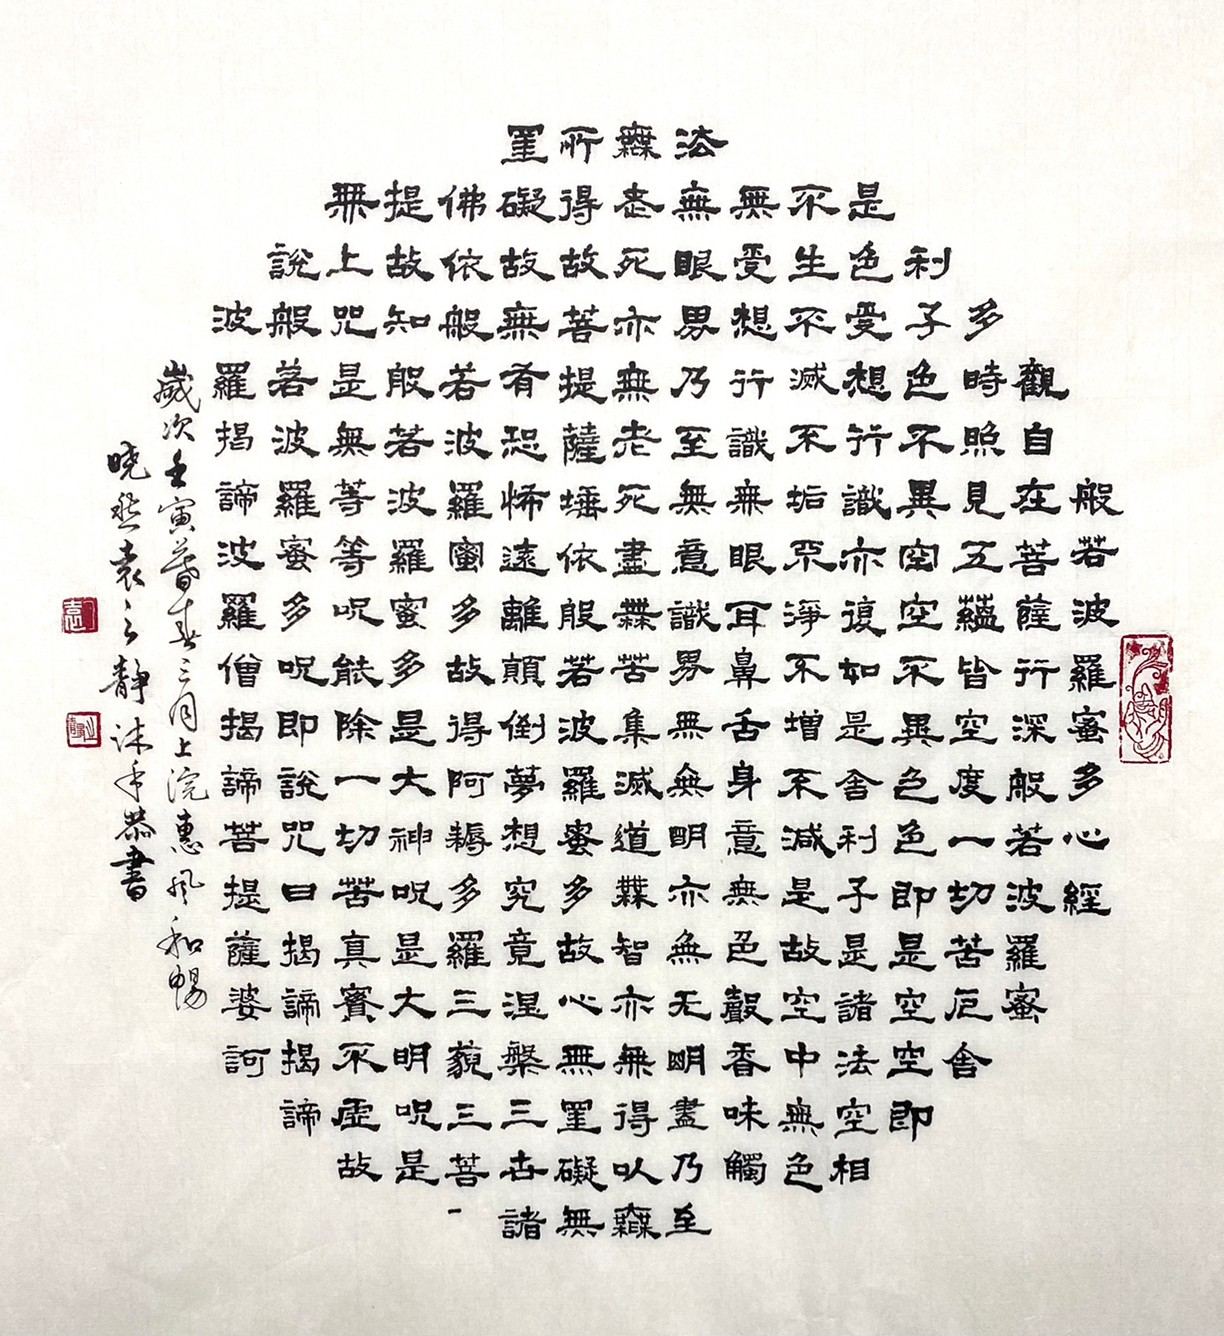 般若波羅蜜多心經
觀自在菩薩行深般若波羅蜜
多時照見五蘊皆空度一切苦厄舍
利子色不異空空不異色色即是空空即
是色受想行識亦復如是舍利子是諸法空相
不生不滅不垢不淨不增不減是故空中無色
無受想行識無眼耳鼻舌身意無色聲香味觸
法無眼界乃至無意識界無無明亦無无明盡乃至
無老死亦無老死盡無苦集滅道無智亦無得以無
所得故菩提薩埵依般若波羅蜜多故心無罣礙無
罣礙故無有恐怖遠離顛倒夢想究竟涅槃三世諸
佛依般若波羅蜜多故得阿耨多羅三藐三菩
提故知般若波羅蜜多是大神咒是大明咒是
無上咒是無等等咒能除一切苦真實不虛故
說般若波羅蜜多咒即說咒曰揭諦揭諦
波羅揭諦波羅僧揭諦菩提薩婆訶
歲次壬寅暮春三月上浣惠風和暢
曉然袁之靜沐手恭書